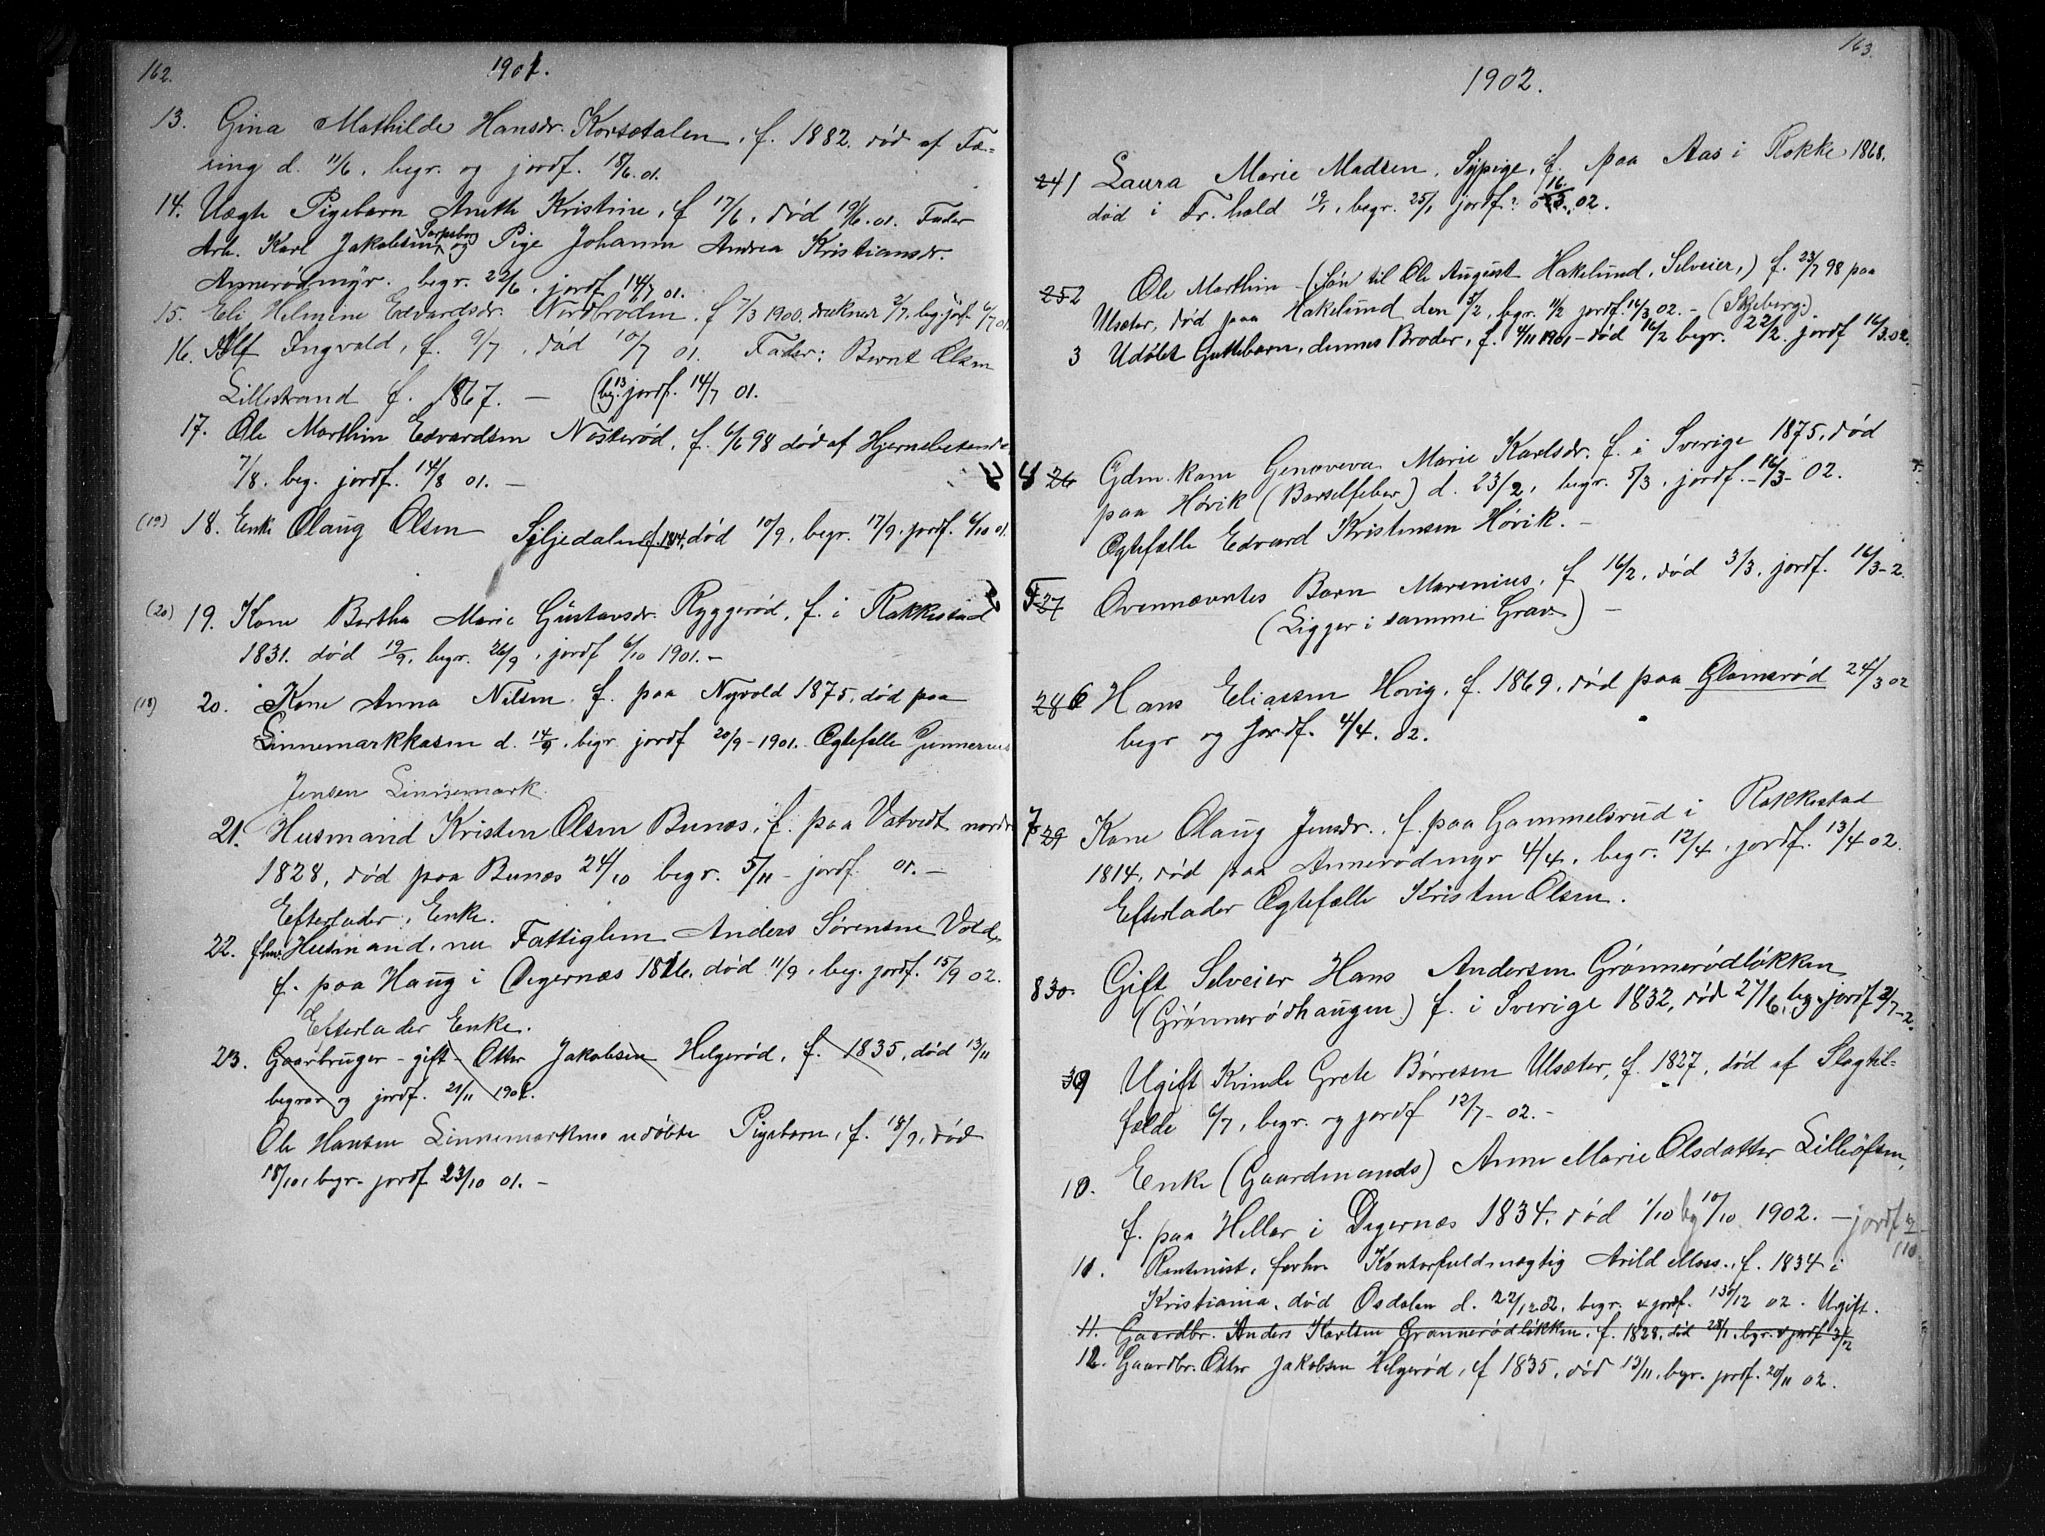 162.
1901.
13. Gina Mathilde Hansdr. Korsetalen, f. 1882. død af Tæ-
ring d. 11/6, begr. og jordf. 18/6.01.
14. Uægte Pigebarn Aneth Kristine, f 17/6, død 19/6.01. Fader
Arb. Karl Jakobsen Sarpsborg og Pige Johanne Andrea Kristiansdr.
Annerødmyr. begr. 22/6, jordf 14/7 01.
15. Eli Helmine Edvardsdr. Nordbroden, f 7/3 1900, druknet 2/7, beg. jorf. 6/7 01
16. Alf Ingvald, f. 9/7, død 10/7 01. Fader: Bernt Olsen
Lillestrand f. 1867. — (beg. 13 jordf. 14/7 01.
17. Ole Marthin Edvardsen Nøsterød, f. 6/6 98 død af Hjernebetende
7/8. beg. jordf. 14/8 01. —
(19) 18. Enke Olaug Olsen Siljedalen f. 1814, død 10/9, begr. 17/9. jordf. 6/10 01.
(20) 19. Kone Bertha Marie Gustavsdr. Ryggerød, f. i Rakkestad
1831. død 19/9, begr. 26/9, jordf 6/10 1901. —
(18) 20. Kone Anna Nilsen f. paa Nyvold 1875, død paa
Linnemarkkasen d. 14/9, begr. jordf 20/9 - 1901. Ægtefælle Gunnerius
Jensen Linnemark
21. Husmand Kristen Olsen Bunæs, f. paa Vatvedt nordre
1828, død paa Bunæs 24/10 begr. 5/11 - jordf. 01. —
Efterlader Enke.
22. fhv. Husmand, nu Fattiglem Anders Sørensen Vold,
f. paa Haug i Degernæs 1826. død 11/9, beg. jordf. 15/9 02.
Efterlader Enke.
23. Gaarbruger - gift - Otter Jakobsen Helgerød, f. 1835, død 13/11
begrav og jordf. 21/11 1901.
Ole Hansen Linnemarkens udøbte Pigebarn, f. 18/9, død
18/10, begr. jordf 23/10 01. —
163.
1902.
241 Laura Marie Madsen, Sypige, f paa Aas i Rokke 1868.
død i Fr.hald 19/1, begr. 25/1 jordf. 16/3 02.
252 Ole Marthin (Søn til Ole August Hakelund, Selveier,) f. 23/7 98 paa
Ulsæter, død paa Hakelund den 5/2, begr. 11/2 jordf. 16/3 02. — (Skjeberg.)
3 Udøbt Guttebarn, dennes Broder, f. 4/11 1901 - død 16/2 begr. 22/2. jordf 16/3.02.
4 26 Gdm. kone Genoveva Marie Karlsdr. f. i Sverige 1875, død
paa Hørik (Barselfeber) d. 23/2, begr. 5/3, jordf. 16/3 - 02.
Ægtefælle Edvard Kristensen Hørik. —
5 27 Ovennævntes Barn Marenius, f 16/2, død 3/3, jordf. 16/3 - 2.
(Ligger i samme Grav.) —
286 Hans Eliassen Hovig, f. 1869, død paa Glomsrød 24/3 02
begr og jordf. 4/4. 02.
7 29 Kone Olaug Jensdr., f. paa Gammelsrud i Rakkestad
1814, død paa Annerødmyr 4/4, begr. 12/4, jordf. 13/4 02.
Efterlader Ægtefælle Kristen Olsen.
830. Gift Selveier Hans Andersen Grønnerødløkken
(Grønnerødhaugen) f. i Sverige 1832, død 27/6, beg. jordf 2/7 - 2.
9 Ugift Kvinde Grete Børresen Ulsæter, f. 1827, død af Slagtil-
fælde 6/7, begr. og jordf 12/7 - 02. —
10. Enke (Gaardmands) Anne Marie Olsdatter Lilleøften,
f. paa Heller i Degernæs 1834, død 1/10 beg 10/10 1902. — jordf
11. Rentenist, forhen Kontorfuldmægtig Arild Moss, f. 1834 i
Kristiania, død Osdalen d. 22/12 02, begr. & jordf. 30/12 02. Ugift.
11. Gaardbr. Anders Karlsen Grønnerødløkken, f. 1828, død 28/1, begr. & jordf
12. Gaardbr. Otter Jakobsen Helgerød, f 1835, død 13/11, begr. jordf. 20/11 02.